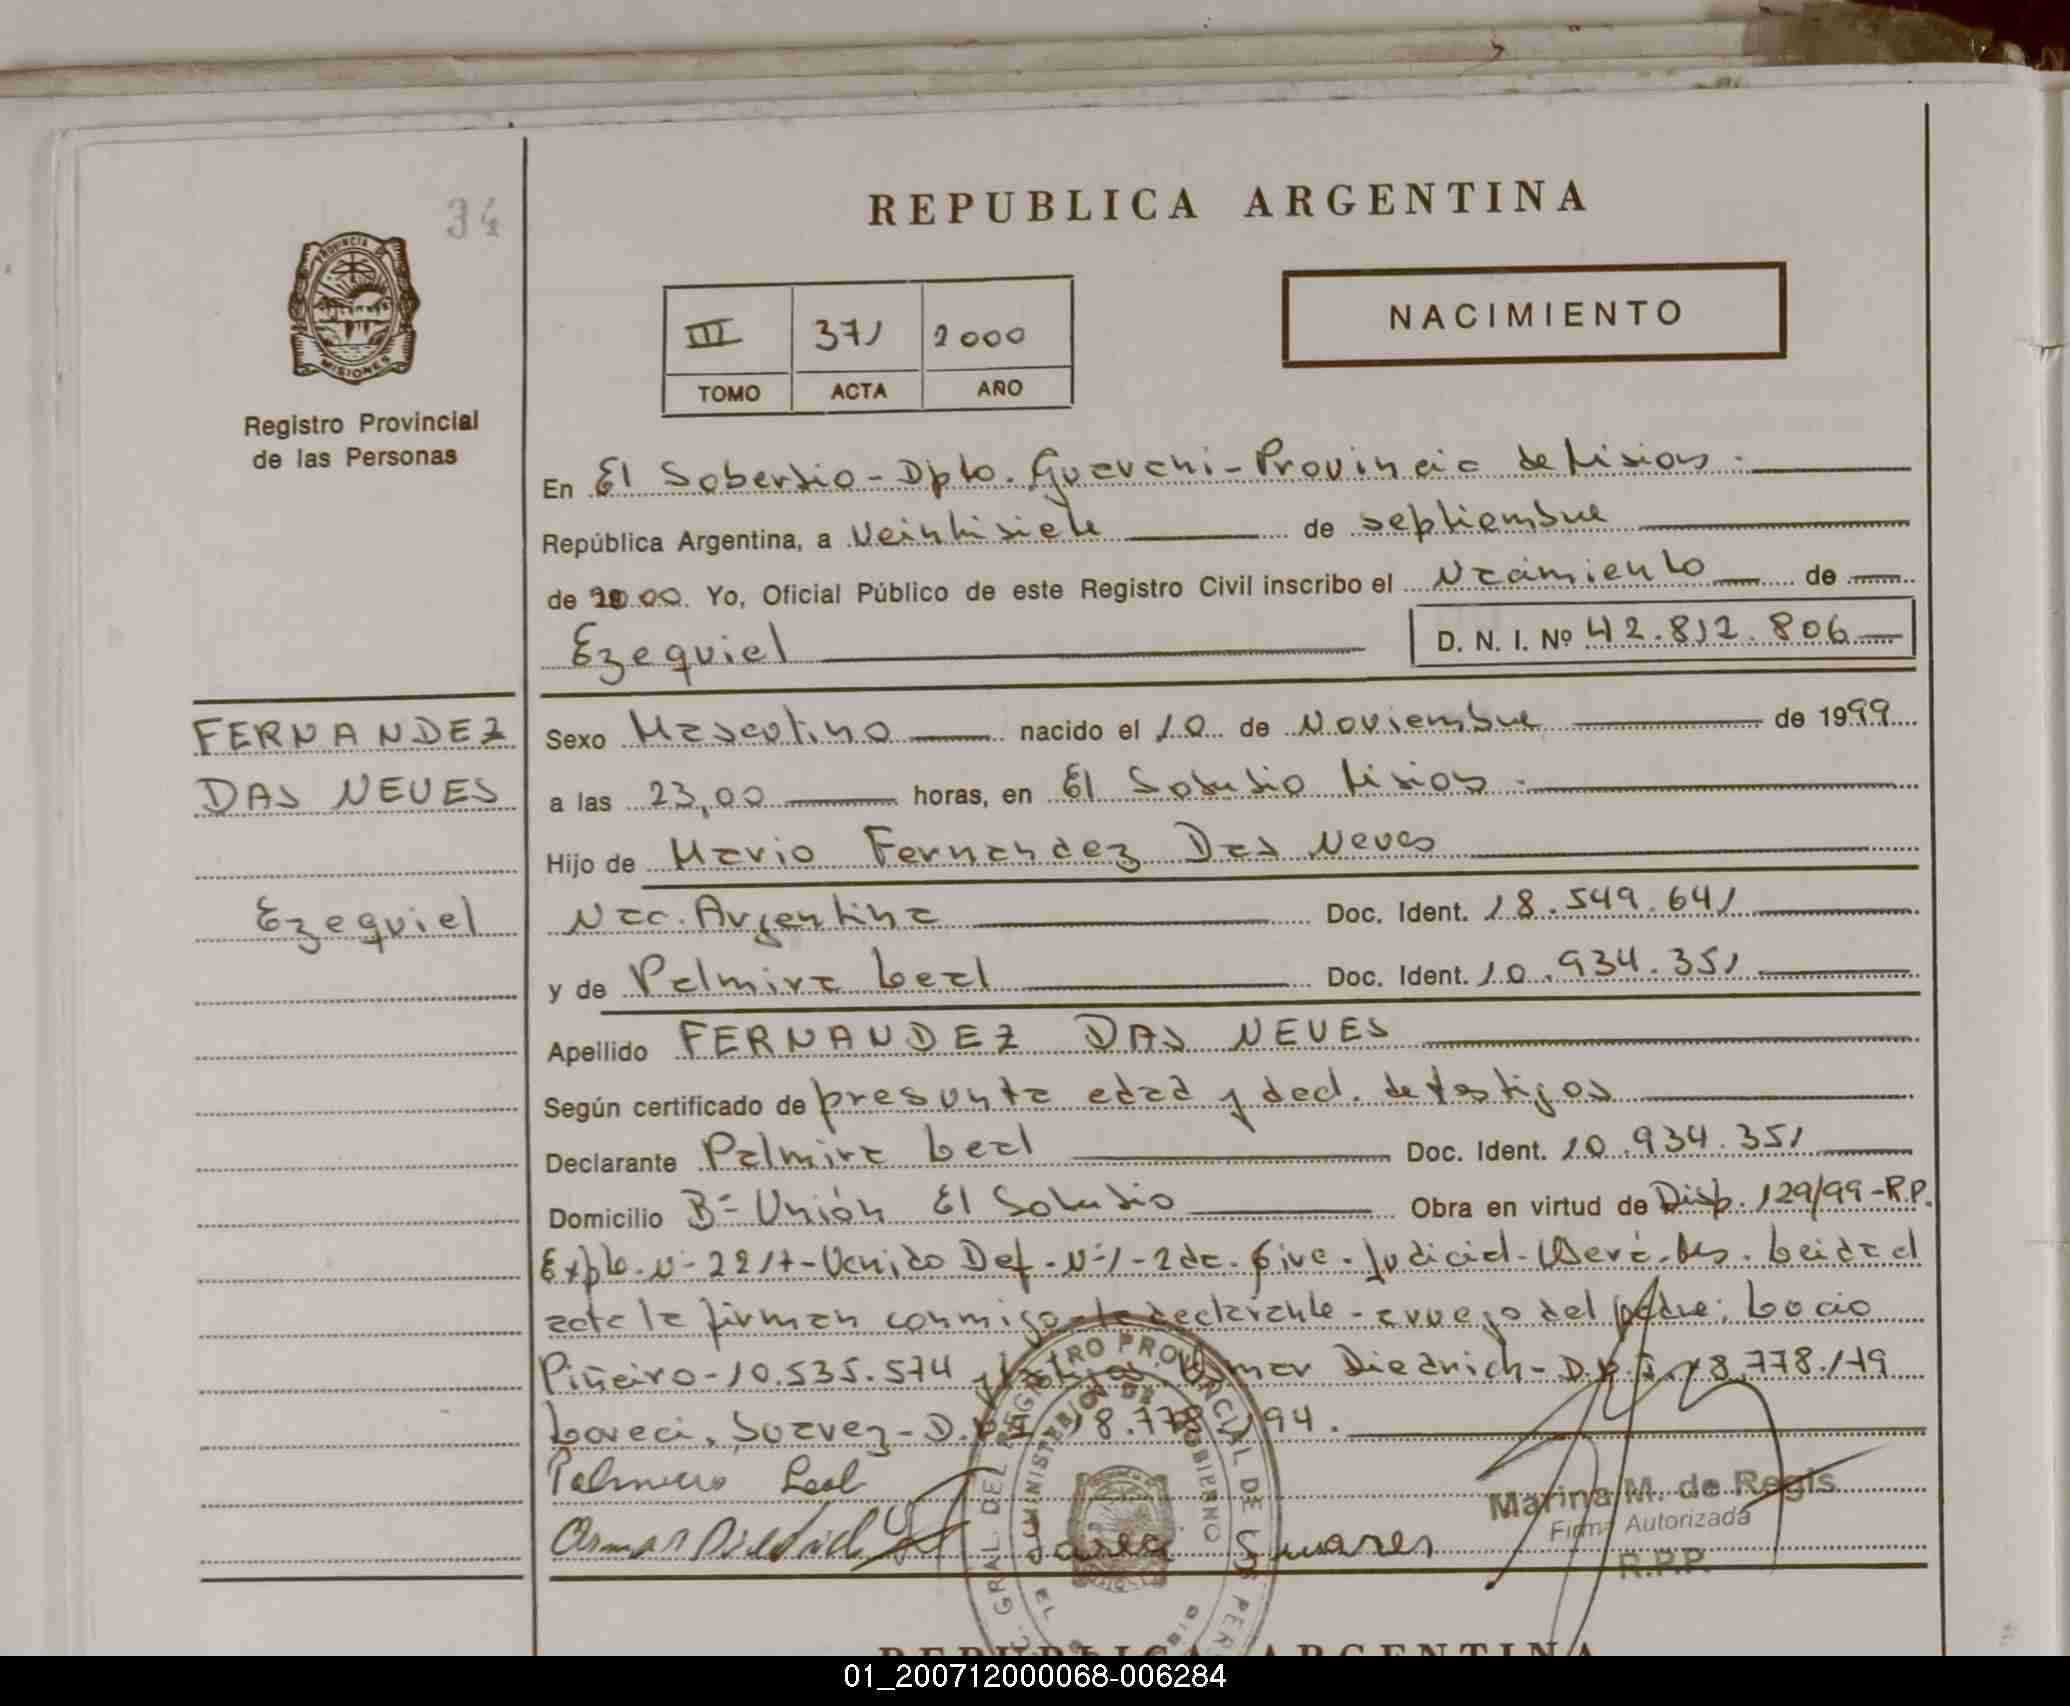 34
PROVINCIA DE
MISIONES
Registro Provincial
de las Personas
REPUBLICA ARGENTINA
III 371 2000
TOMO ACTA AÑO
NACIMIENTO
En El Soberbio - Dpto. Guarani - Provincia de Misiones.
República Argentina, a Veintisiete de septiembre
de 2000. Yo, Oficial Público de este Registro Civil inscribo el Nacimiento de
Ezequiel D. N. I. Nº 42.812.806
FERNANDEZ
DAS NEVES
Ezequiel
Sexo Masculino nacido el 10 de Noviembre de 1999
a las 23,00 horas, en El Soberbio Misiones.
Hijo de Mario Fernandez Das Neves
Nac. Argentina Doc. Ident. 18.549.641
y de Palmira Leal Doc. Ident. 10.934.351
Apellido FERNANDEZ DAS NEVES
Según certificado de presunta edad y decl. de testigos
Declarante Palmira Leal Doc. Ident. 10.934.351
Domicilio Bº Unión El Soberbio Obra en virtud de Disp. 129/99-R.P.
Expte. Nº 221/ - Venido Def. Nº 1 - 2da. Circ. Judicial - Oberá - Mnes. Leida el
acta la firman conmigo la declarante - a ruego del padre; Lucio
Piñeiro - 10.535.574 y testigos Diedrich - D.N.I. 18.778.179
Suarez - D.N.I. 18.778.194.
Leal
Suares
Marina M. de Regis
Firma Autorizada
R.P.P.
GRAL DEL REGISTRO PROVINCIAL DE
MINISTERIO DE GOBIERNO
REPUBLICA ARGENTINA
01_200712000068-006284